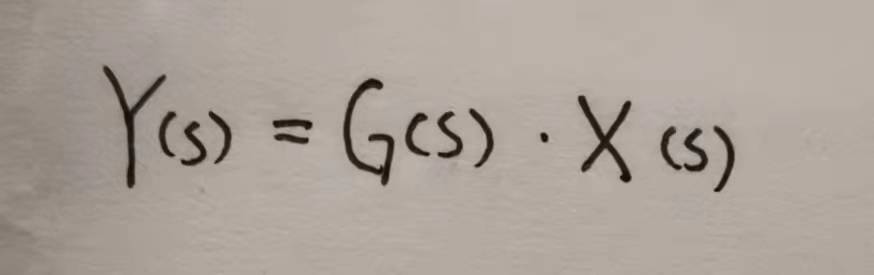 Y(s) = G(s) · X(s)